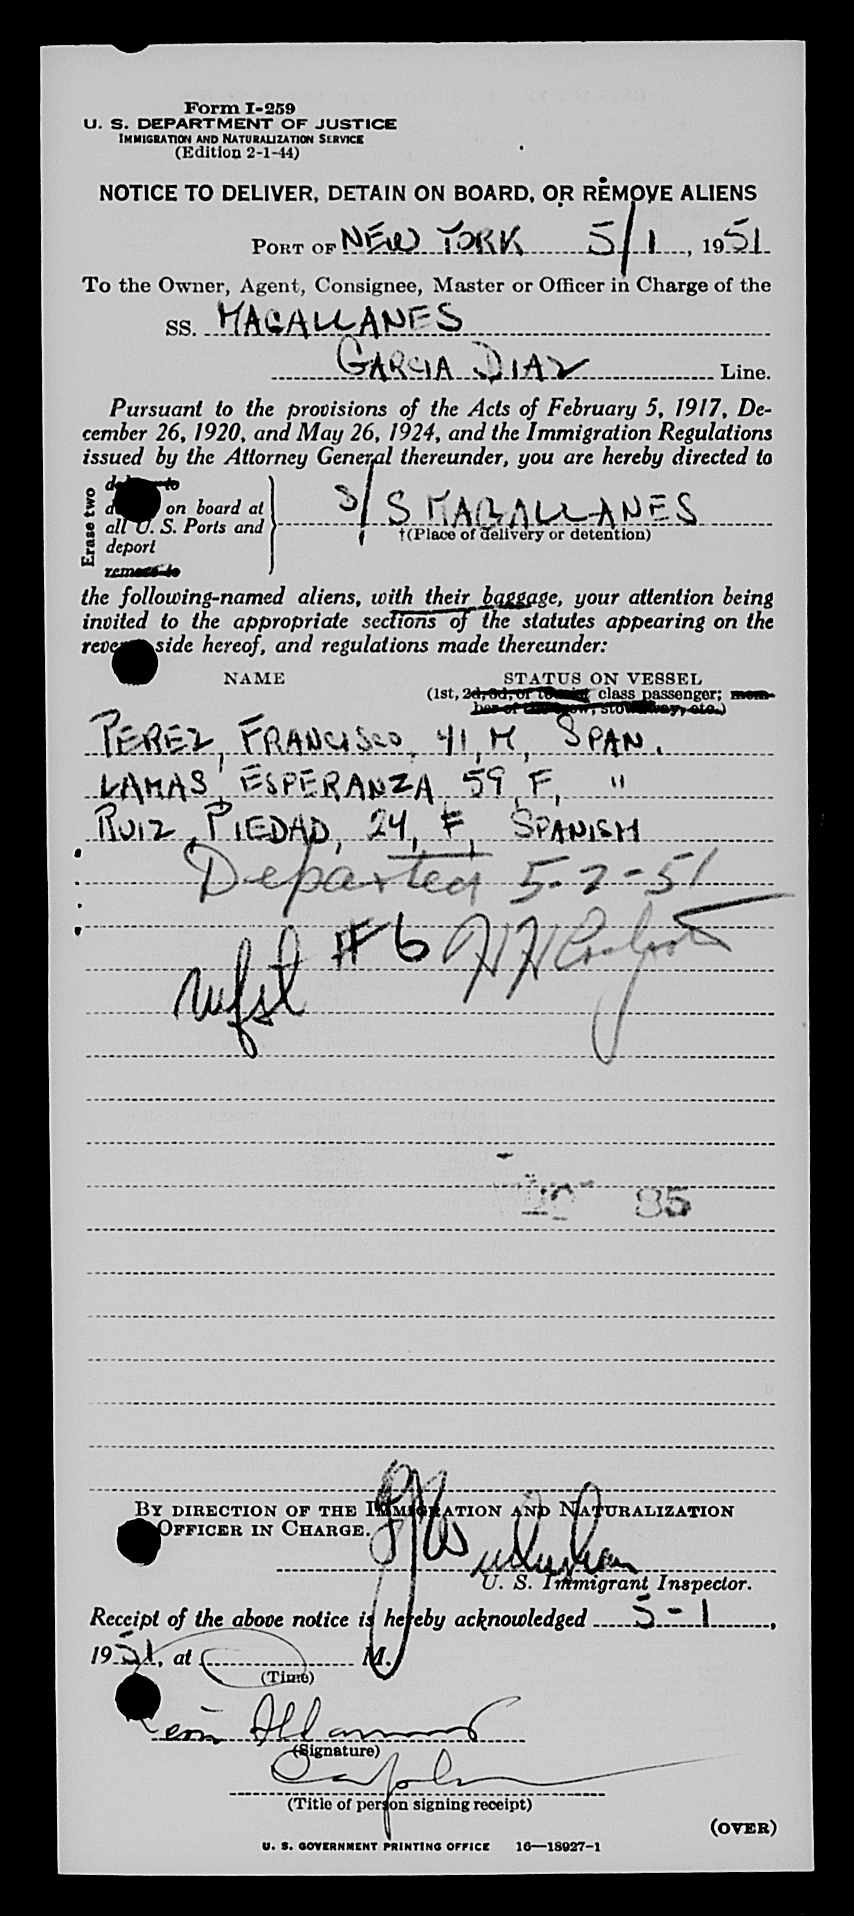 Form I-259
U. S. DEPARTMENT OF JUSTICE
IMMIGRATION AND NATURALIZATION SERVICE
(Edition 2-1-44)
NOTICE TO DELIVER, DETAIN ON BOARD, OR REMOVE ALIENS
PORT OF NEW YORK 5/1, 1951
To the Owner, Agent, Consignee, Master or Officer in Charge of the
SS. MAGALLANES
GARCIA DIAZ Line.
Pursuant to the provisions of the Acts of February 5, 1917, De-
cember 26, 1920, and May 26, 1924, and the Immigration Regulations
issued by the Attorney General thereunder, you are hereby directed to
Erase two
on board at
all U. S. Ports and
deport
remove to
S/S MAGALLANES
†(Place of delivery or detention)
the following-named aliens, with their baggage, your attention being
invited to the appropriate sections of the statutes appearing on the
side hereof, and regulations made thereunder:
NAME STATUS ON VESSEL
(1st, 2d, 3d, or class passenger; mem-
ber of the crew, stowaway, etc.)
PEREZ, FRANCISCO, 41, M, SPAN.
LAMAS, ESPERANZA, 59, F, "
RUIZ, PIEDAD, 24, F, SPANISH
Departed 5-2-51
mfst #6
85
BY DIRECTION OF THE IMMIGRATION AND NATURALIZATION
OFFICER IN CHARGE.
U. S. Immigrant Inspector.
Receipt of the above notice is hereby acknowledged 5-1,
1951, at M.
(Time)
(Signature)
(Title of person signing receipt)
(OVER)
U. S. GOVERNMENT PRINTING OFFICE 16—18927-1